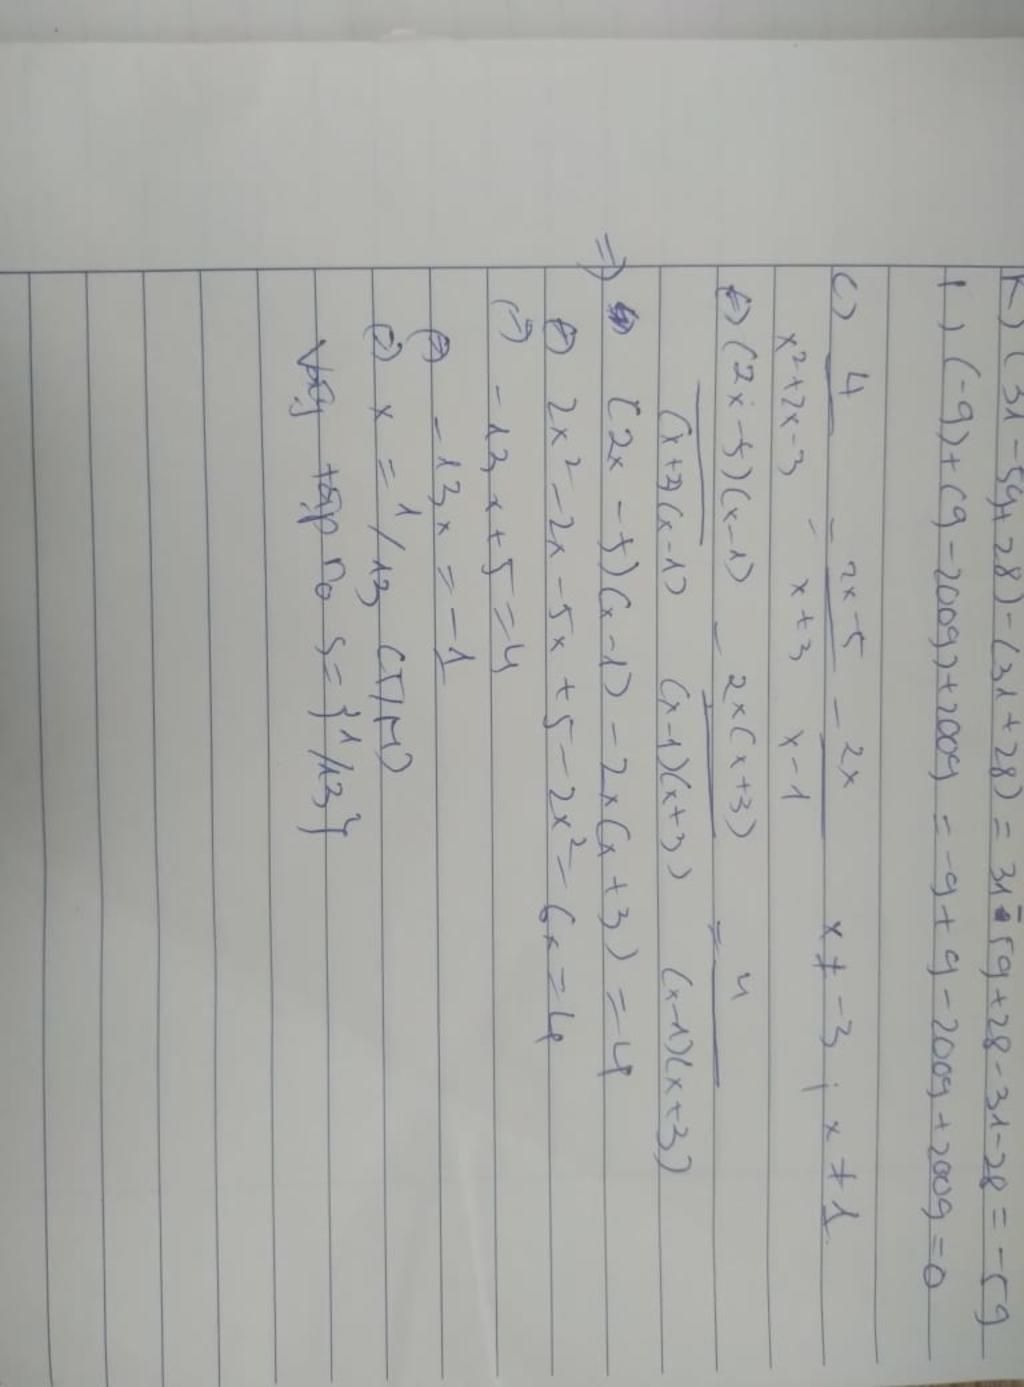 K) (31 - 59 + 28) - (31 + 28) = 31 - 59 + 28 - 31 - 28 = - 59
(-9) + (9 - 2009) + 2009 = -9 + 9 - 2009 + 2009 = 0
C) 4/(x² + 2x - 3) = (2x - 5)/(x + 3) - 2x/(x - 1) x ≠ -3 ; x ≠ 1
(=) (2x - 5)(x - 1)/((x + 3)(x - 1)) - 2x(x + 3)/((x - 1)(x + 3)) = 4/((x - 1)(x + 3))
=> (2x - 5)(x - 1) - 2x(x + 3) = 4
(=) 2x² - 2x - 5x + 5 - 2x² - 6x = 4
(=) - 13x + 5 = 4
(=) - 13x = - 1
(=) x = 1/13 (T/M)
Vậy tập no S = {1/13}